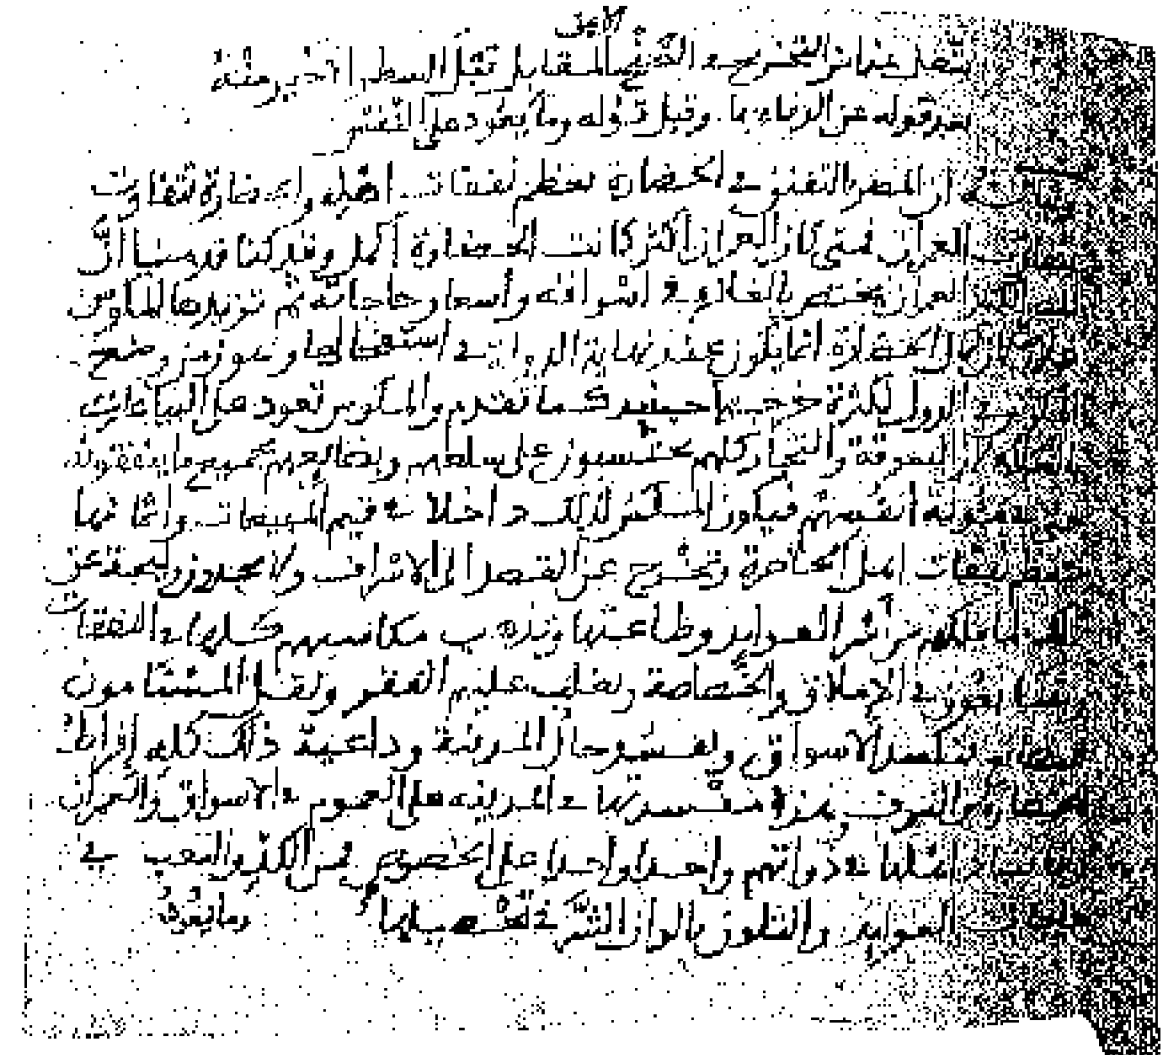 الايمن
ينقل هنا من التخريجة التي بالمقابل قبل السطر الاخير منه
بعد قوله عن الوفاء بها. وقبل قوله وما يعود على النفس
ان المصر بالتفنن في الحضارة تعظم نفقات اهله والحضارة تتفاوت
العمران فمتى كان العمران اكثر كانت الحضارة اكمل وقد كنا قدمنا انّ
العمران يختص بالغلاء في اسواقه وأسعار حاجاته ثم تزيدها المكوس
الحضارة انما يكون عند نهاية الدولة في استفحالها وهو زمن وضع
في الدول لكثرة خرجها حينئذ كما تقدم والمكوس تعود على البياعات
السوقة والتجار كلهم يحتسبون على سلعهم وبضايعهم بجميع ما ينفقونه
مئونة انفسهم فيكون المكس لذلك داخلا في قيم المبيعات واثمانها
نفقات اهل الحاضرة وتخرج عن القصد الى الاسراف ولا يجدون وليجة عن
لما ملكهم من أثر العوايد وطاعتها وتذهب مكاسبهم كلها في النفقات
في الاملاق والخصاصة ويغلب عليهم الفقر ويقل المستامون
فتكسد الاسواق ويفسد حال المدينة وداعية ذلك كله إفراط
الحضارة والترف وهذه مفسدتها في المدينة على العموم في الاسواق والعمران
اهلها في ذواتهم واحدا واحدا على الخصوص فمن الكد والتعب في
العوايد والتلون بالوان الشرّ في تحصيلها
وما يعود